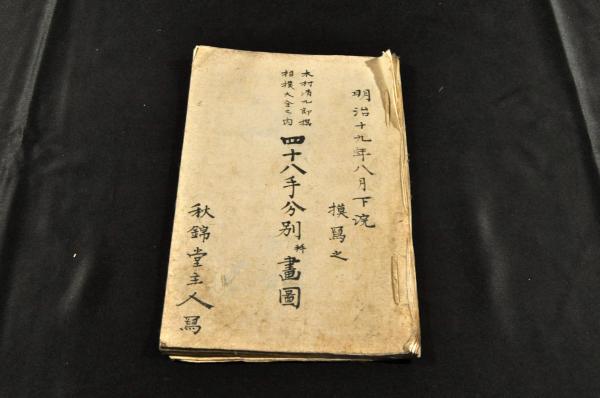 明治十九年八月下浣
摸寫之
木村清九郎撰
相撲大全之内
四十八手分別并畫圖
秋錦堂主人寫